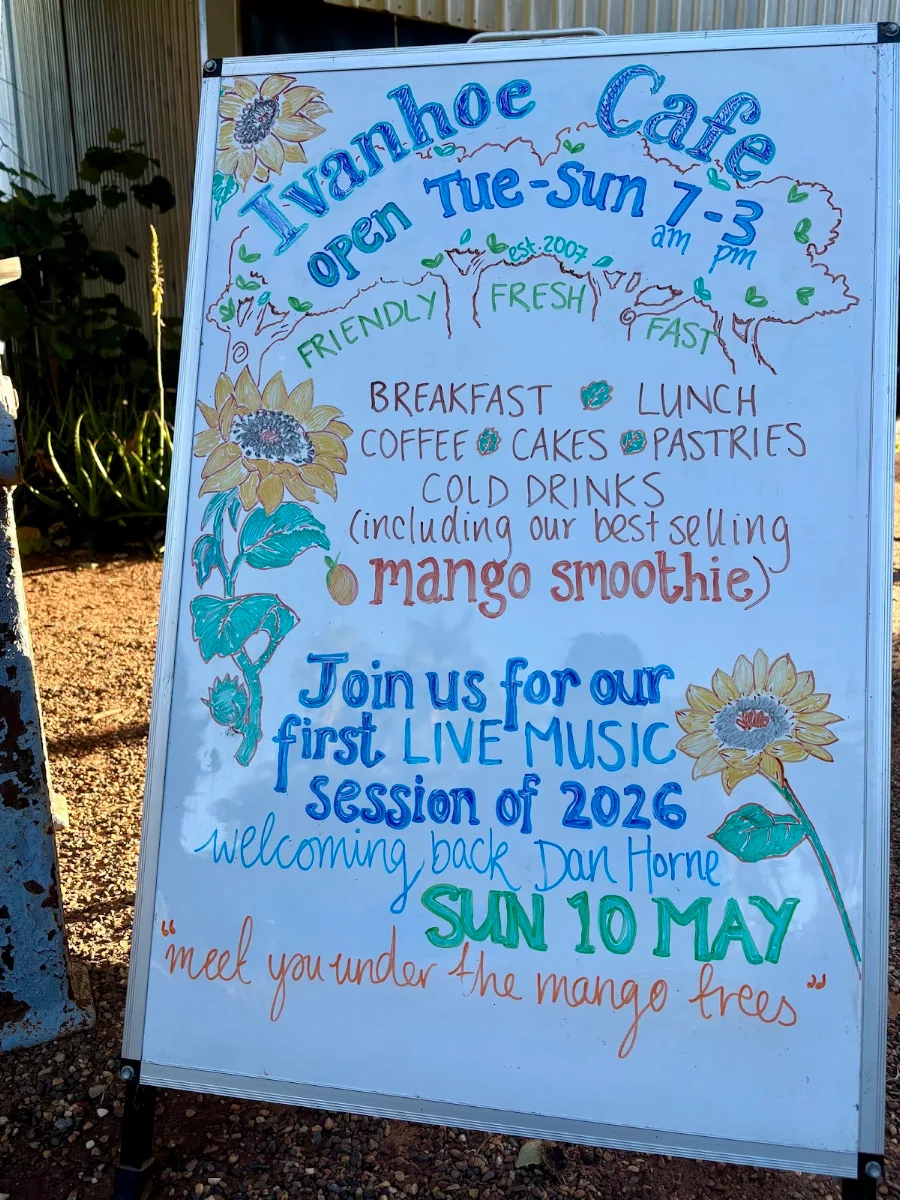 Ivanhoe Cafe
open Tue-Sun 7am - 3pm
est. 2007
FRIENDLY FRESH FAST
BREAKFAST LUNCH
COFFEE CAKES PASTRIES
COLD DRINKS
(including our best selling
mango smoothie)
Join us for our
first LIVE MUSIC
session of 2026
welcoming back Dan Horne
SUN 10 MAY
"meet you under the mango trees"